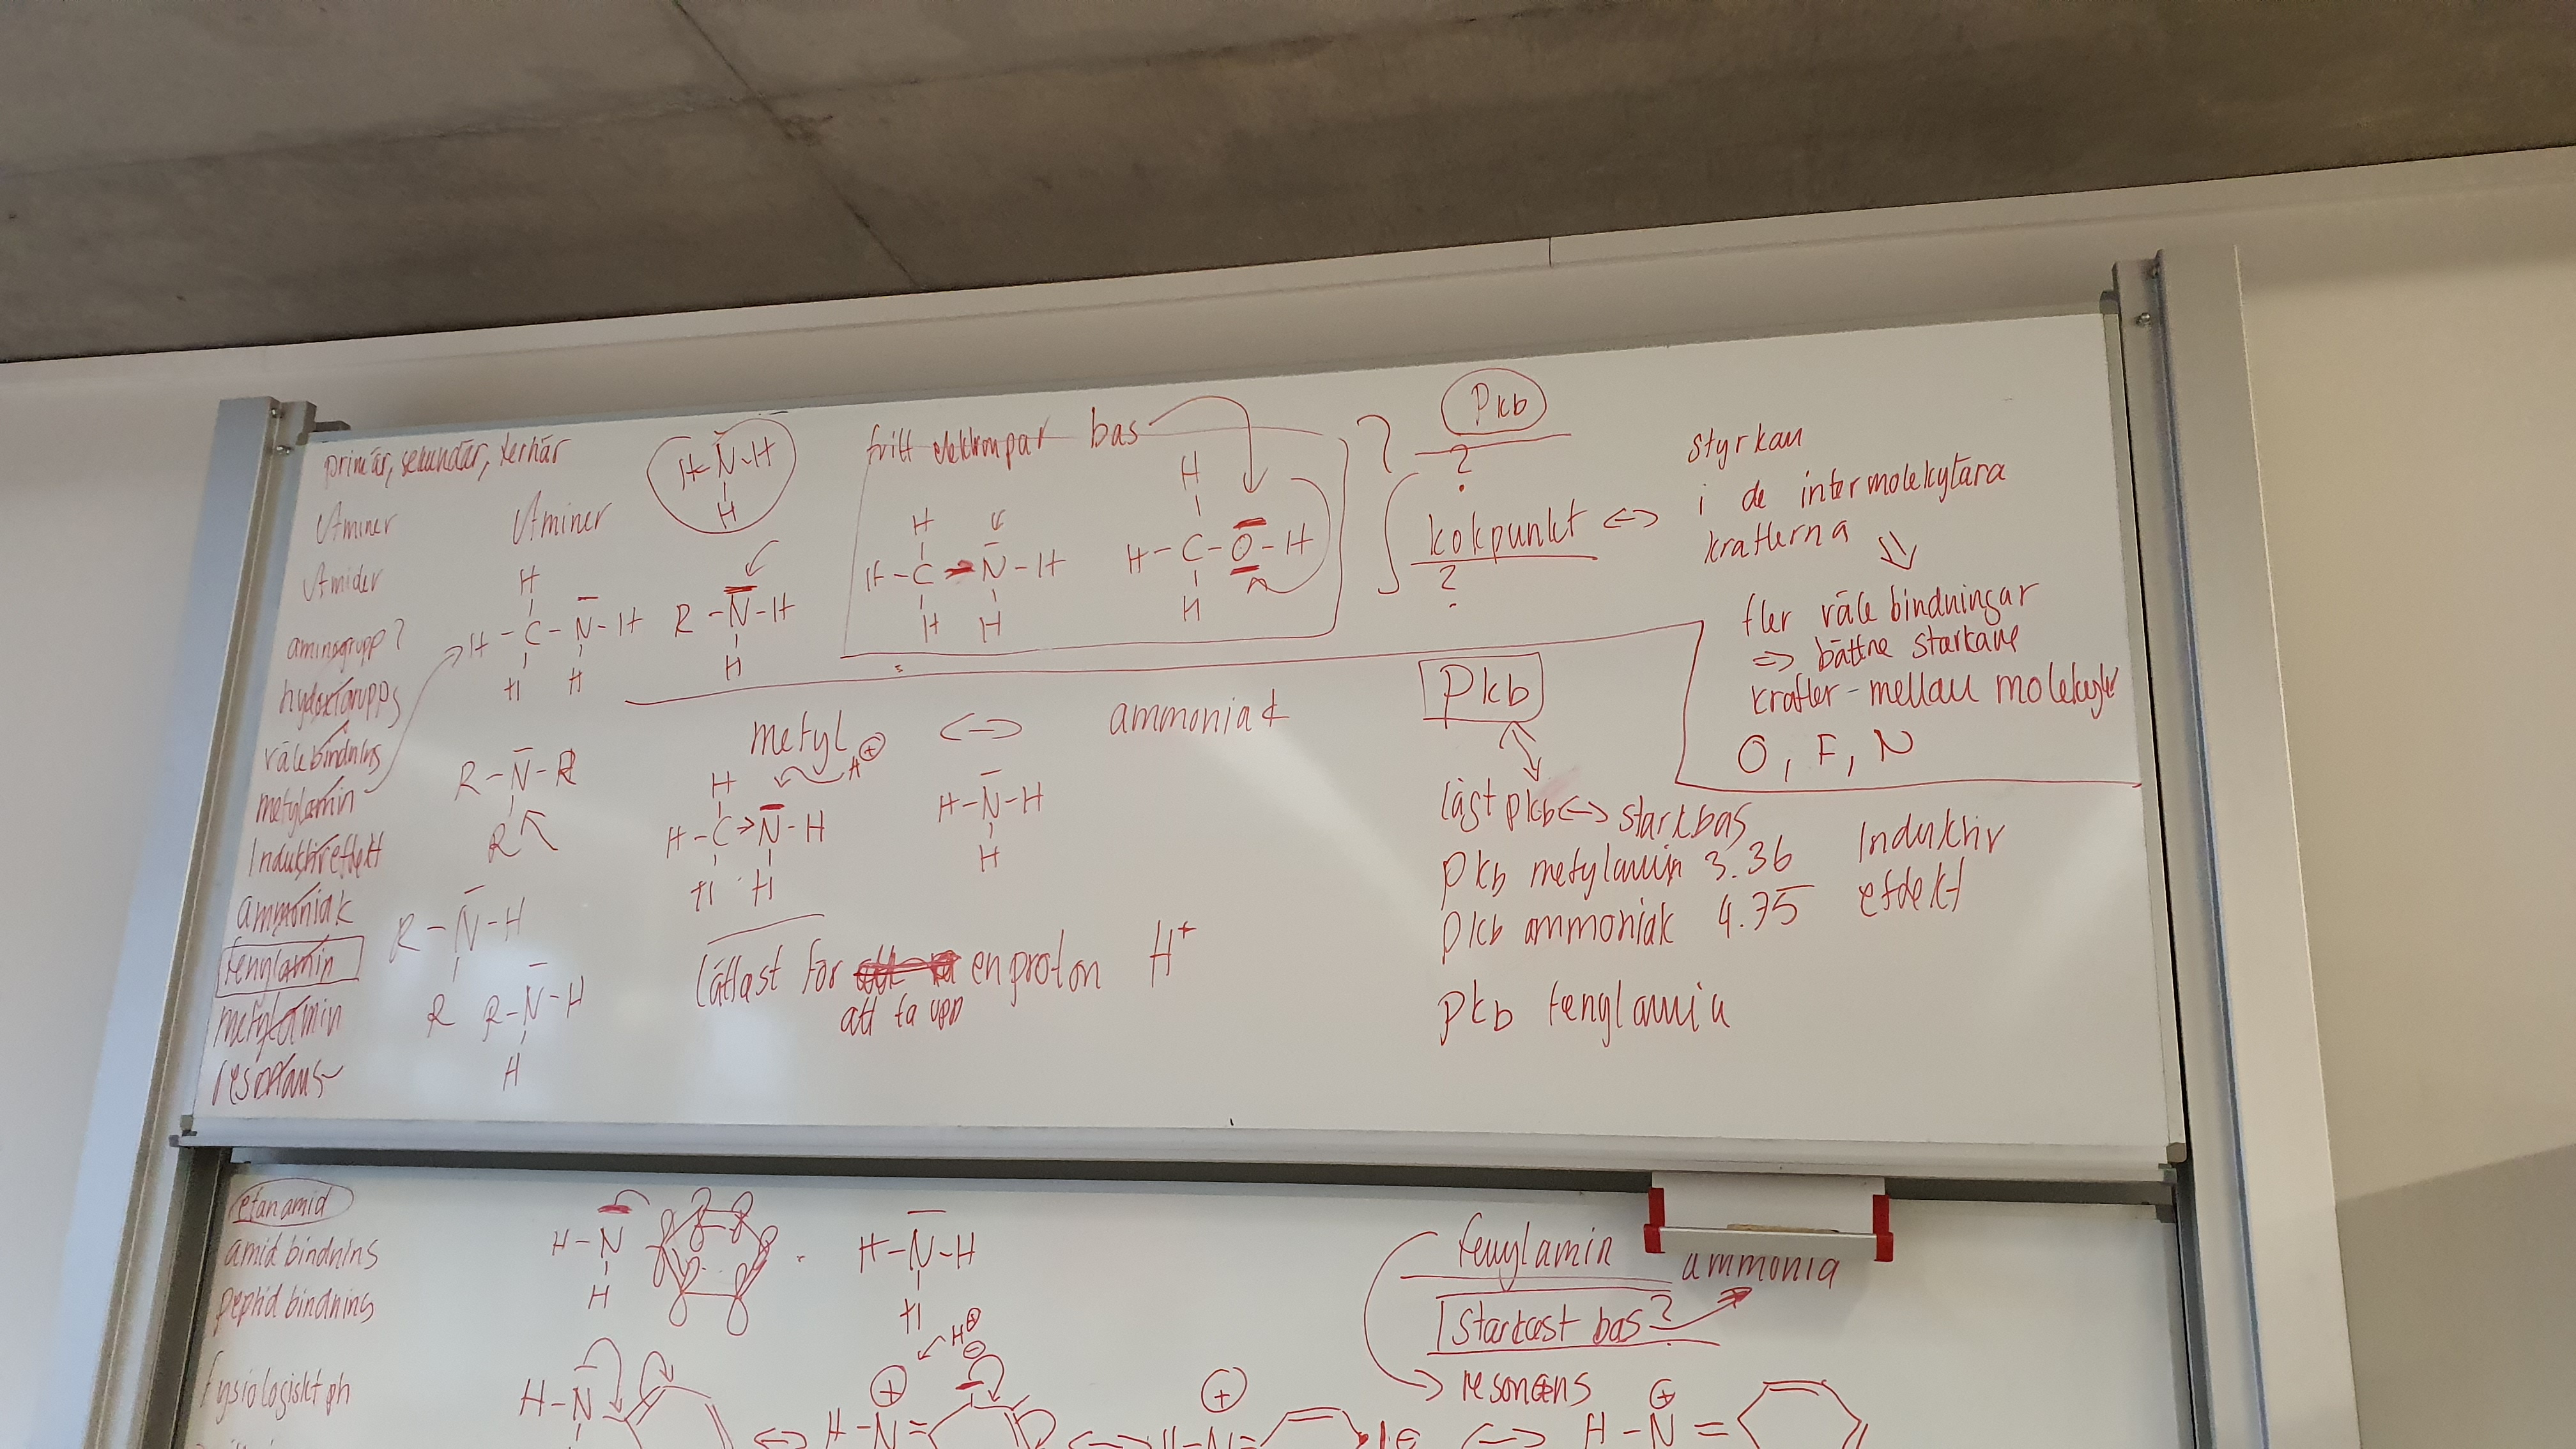 primär, sekundär, tertiär
Aminer
Amider
aminogrupp?
vätebindning
metylamin
Induktiv effekt
ammoniak
fenylamin
metylamin
resonans
Aminer
H-N-H
H
H
H-C-N-H
H H
R-N-H
H
R-N-R
R
R-N-H
R
R-N-H
H
fritt elektronpar bas
H
H-C-N-H
H H
H
H-C-O-H
H
?
Pkb
?
kokpunkt <->
?
styrkan
i de intermolekylära
krafterna
fler väte bindningar
=> bättre starkare
krafter - mellan molekyler
O, F, N
metyl <-> ammoniak
H⊕
H
H-C→N-H
H H
H-N-H
H
lättast för en proton H+
att ta upp
Pkb
lägst pkb <-> stark bas
Pkb metylamin 3.36 Induktiv
Pkb ammoniak 4.75 effekt
Pkb fenylamin
etanamid
amid bindning
peptid bindning
fysiologiskt ph
H-N
H
H-N-H
H
fenylamin ammonia
Starkast bas?
resonans
H-N
⊕ H⊕ ⊖
H-N=
<->
⊕
H-N=
⊖
<->
⊕
H-N=